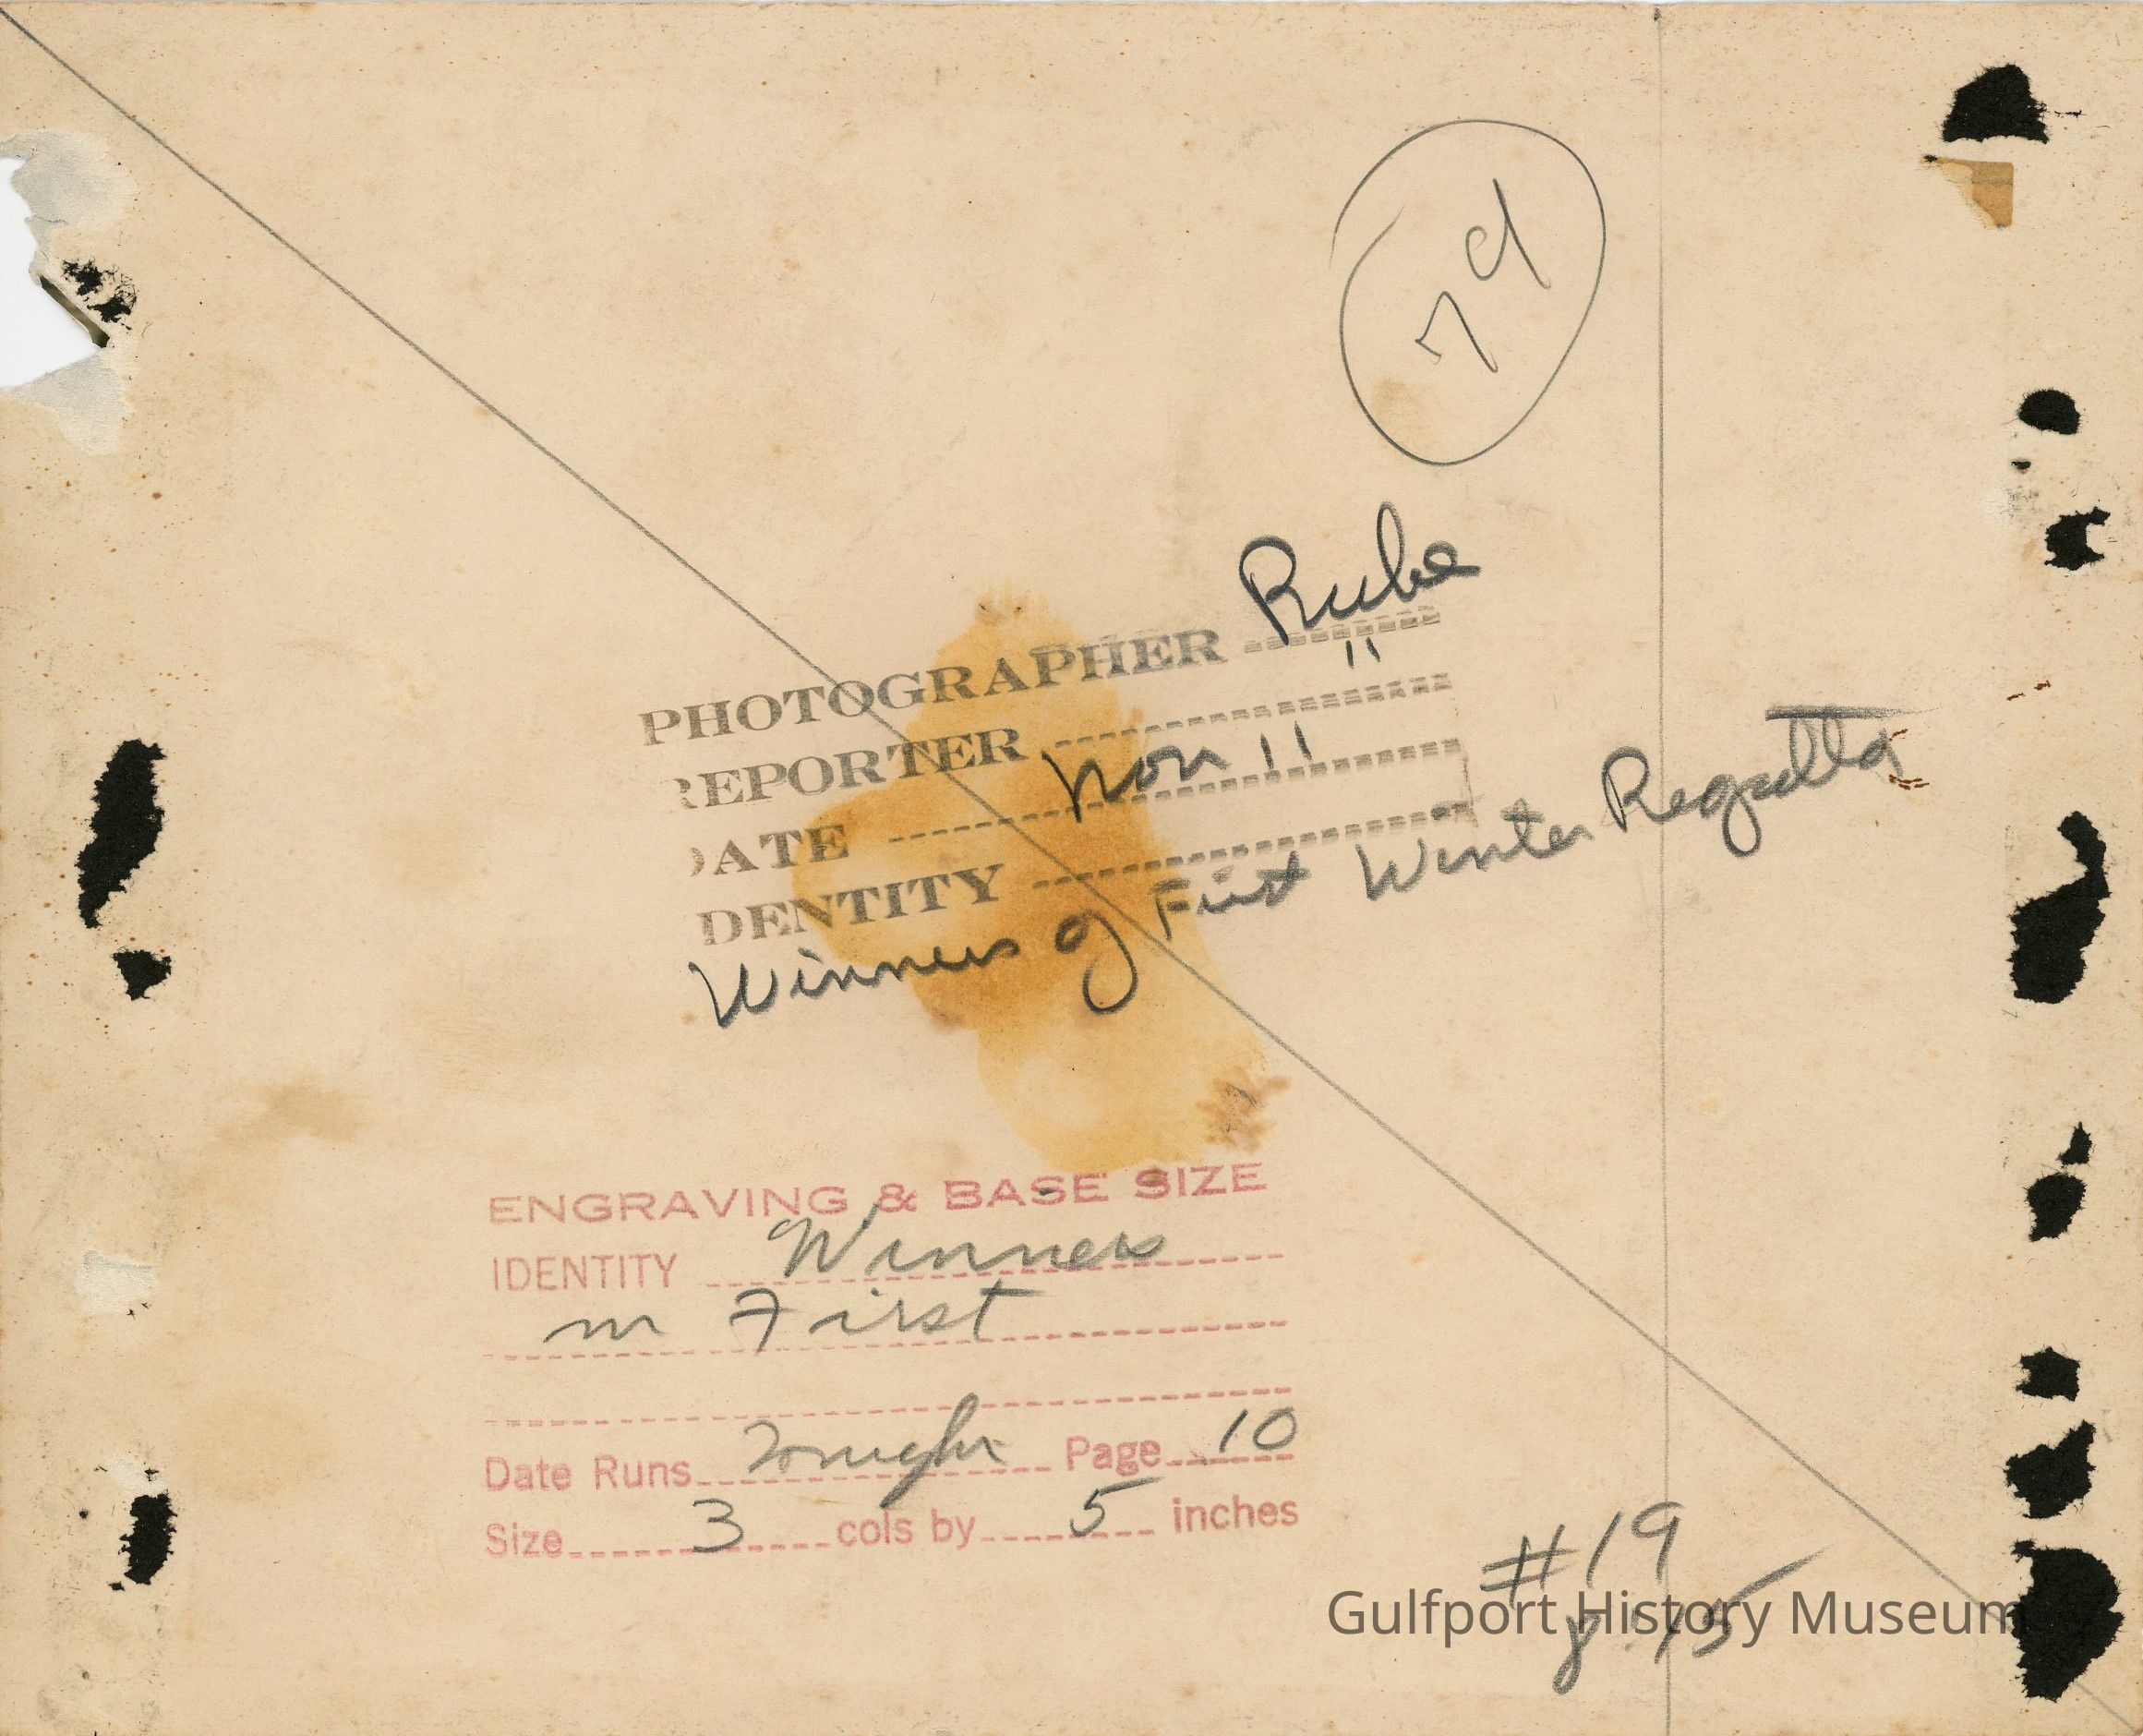 79
PHOTOGRAPHER Rube
REPORTER "
DATE Nov 11
IDENTITY
Winners of First Winter Regatta
ENGRAVING & BASE SIZE
IDENTITY Winners
in First
Date Runs Tonight Page 10
Size 3 cols by 5 inches
#19
8:15
Gulfport History Museum